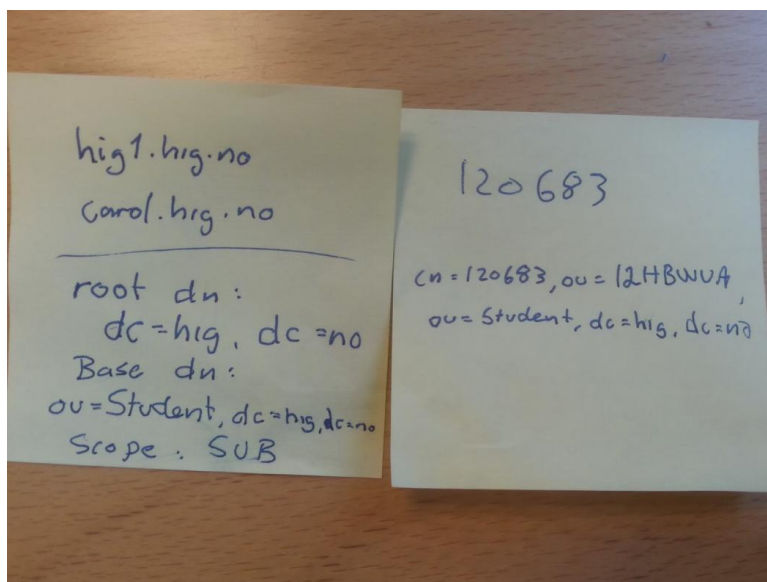 hig1.hig.no
carol.hig.no
root dn:
dc=hig, dc=no
Base dn:
ou=Student, dc=hig,dc=no
Scope: SUB
120683
cn=120683, ou=12HBWUA,
ou=Student, dc=hig, dc=no